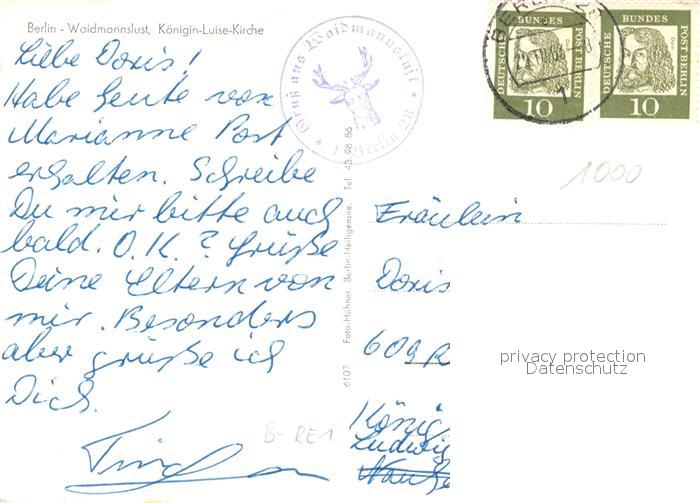 Berlin - Waidmannslust, Königin-Luise-Kirche
Liebe Doris!
Habe heute von
Marianne Post
erhalten. Schreibe
Du mir bitte auch
bald. O.K.? Grüße
Deine Eltern von
mir. Besonders
aber grüße ich
Dich.
B-RE1
Gruß aus Waidmannslust
1 Berlin 28
6107 Foto-Hübner, Berlin-Heiligensee, Tel. 43 98 86
BERLIN
1
DEUTSCHE BUNDES POST BERLIN
10
DEUTSCHE BUNDES POST BERLIN
10
1000
Fräulein
Doris
609 R
König
Ludwig
privacy protection
Datenschutz